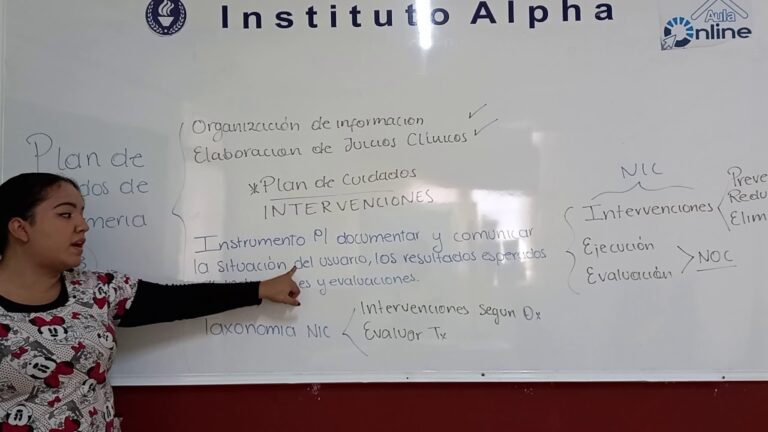 Instituto Alpha
Aula
Online
Plan de
dos de
meria
Organización de informacion
Elaboracion de Juicios Clínicos
*Plan de Cuidados
INTERVENCIONES
Instrumento P/ documentar y comunicar
la situación del usuario, los resultados esperados
es y evaluaciones.
Taxonomia NIC
Intervenciones segun Dx
Evaluar Tx
NIC
Intervenciones
Ejecución
Evaluación
Preve
Redu
Elim
NOC